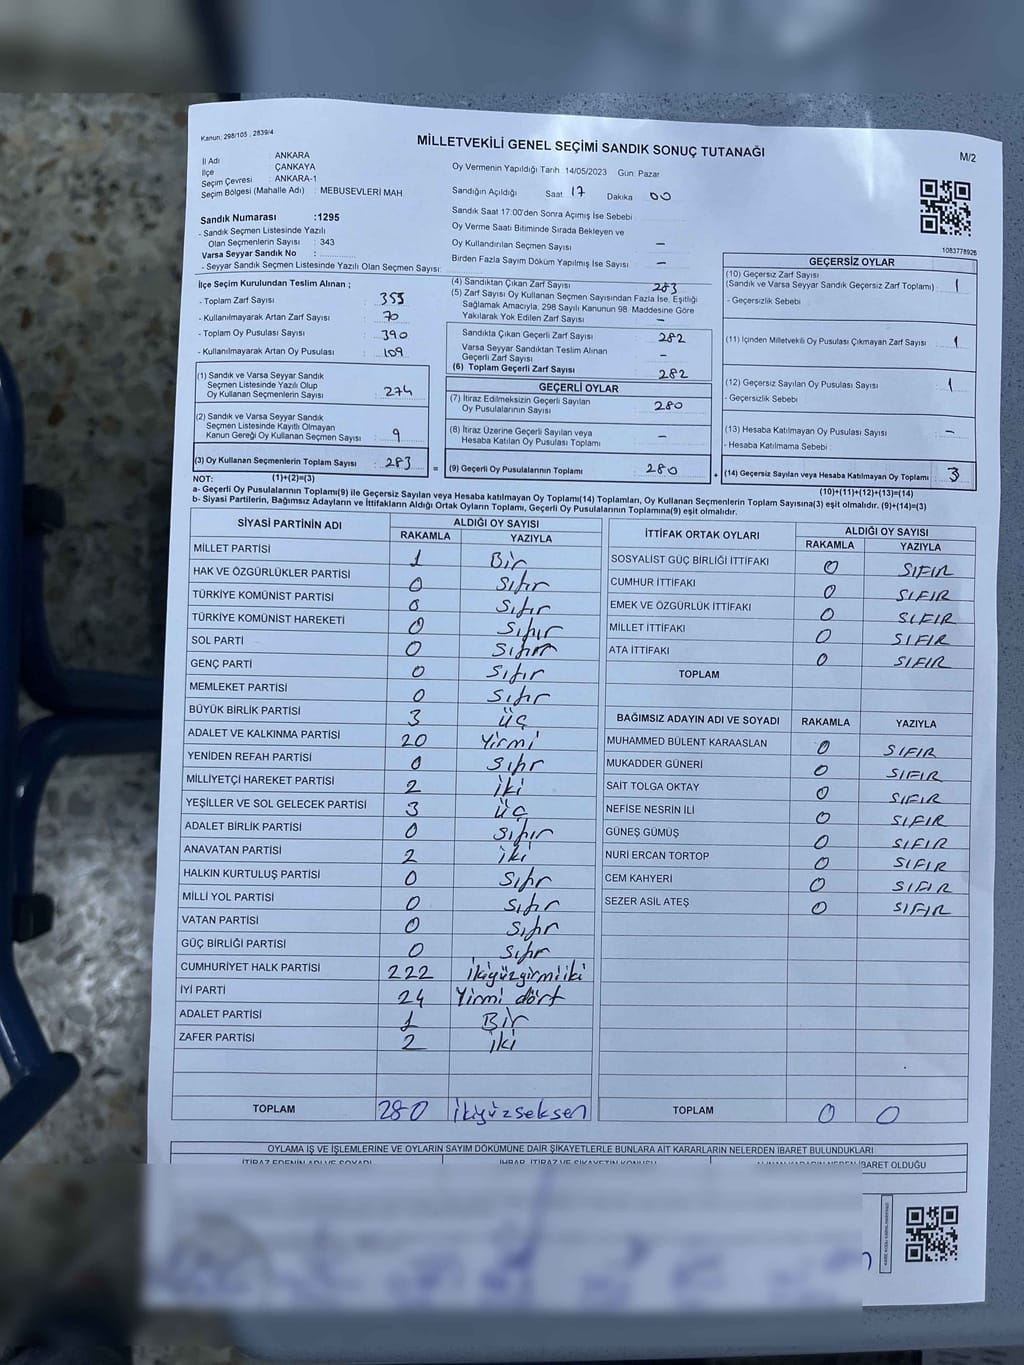 Kanun: 298/105 , 2839/4
MİLLETVEKİLİ GENEL SEÇİMİ SANDIK SONUÇ TUTANAĞI
M/2
İl Adı ANKARA
İlçe ÇANKAYA
Seçim Çevresi : ANKARA-1
Seçim Bölgesi (Mahalle Adı) : MEBUSEVLERİ MAH.
Oy Vermenin Yapıldığı Tarih 14/05/2023 Gün: Pazar
Sandığın Açıldığı Saat 17 Dakika 00
Sandık Saat 17:00'den Sonra Açımış İse Sebebi
Oy Verme Saati Bitiminde Sırada Bekleyen ve
Oy Kullandırılan Seçmen Sayısı —
Birden Fazla Sayım Döküm Yapılmış İse Sayısı —
Sandık Numarası :1295
- Sandık Seçmen Listesinde Yazılı
Olan Seçmenlerin Sayısı : 343
Varsa Seyyar Sandık No :
- Seyyar Sandık Seçmen Listesinde Yazılı Olan Seçmen Sayısı:
1083778926
İlçe Seçim Kurulundan Teslim Alınan ;
- Toplam Zarf Sayısı : 353
- Kullanılmayarak Artan Zarf Sayısı : 70
- Toplam Oy Pusulası Sayısı : 390
- Kullanılmayarak Artan Oy Pusulası : 109
(1) Sandık ve Varsa Seyyar Sandık
Seçmen Listesinde Yazılı Olup
Oy Kullanan Seçmenlerin Sayısı : 274
(2) Sandık ve Varsa Seyyar Sandık
Seçmen Listesinde Kayıtlı Olmayan
Kanun Gereği Oy Kullanan Seçmen Sayısı : 9
(3) Oy Kullanan Seçmenlerin Toplam Sayısı : 283 =
(4) Sandıktan Çıkan Zarf Sayısı 283
(5) Zarf Sayısı Oy Kullanan Seçmen Sayısından Fazla İse, Eşitliği
Sağlamak Amacıyla, 298 Sayılı Kanunun 98. Maddesine Göre
Yakılarak Yok Edilen Zarf Sayısı —
Sandıkta Çıkan Geçerli Zarf Sayısı 282
Varsa Seyyar Sandıktan Teslim Alınan
Geçerli Zarf Sayısı —
(6) Toplam Geçerli Zarf Sayısı 282
GEÇERLİ OYLAR
(7) İtiraz Edilmeksizin Geçerli Sayılan
Oy Pusulalarının Sayısı 280
(8) İtiraz Üzerine Geçerli Sayılan veya
Hesaba Katılan Oy Pusulası Toplamı —
(9) Geçerli Oy Pusulalarının Toplamı 280 +
GEÇERSİZ OYLAR
(10) Geçersiz Zarf Sayısı
(Sandık ve Varsa Seyyar Sandık Geçersiz Zarf Toplamı) : 1
- Geçersizlik Sebebi
(11) İçinden Milletvekili Oy Pusulası Çıkmayan Zarf Sayısı 1
(12) Geçersiz Sayılan Oy Pusulası Sayısı 1
- Geçersizlik Sebebi
(13) Hesaba Katılmayan Oy Pusulası Sayısı : —
- Hesaba Katılmama Sebebi :
(14) Geçersiz Sayılan veya Hesaba Katılmayan Oy Toplamı 3
NOT: (1)+(2)=(3) (10)+(11)+(12)+(13)=(14)
a- Geçerli Oy Pusulalarının Toplamı(9) ile Geçersiz Sayılan veya Hesaba katılmayan Oy Toplamı(14) Toplamları, Oy Kullanan Seçmenlerin Toplam Sayısına(3) eşit olmalıdır. (9)+(14)=(3)
b- Siyasi Partilerin, Bağımsız Adayların ve İttifakların Aldığı Ortak Oyların Toplamı, Geçerli Oy Pusulalarının Toplamına(9) eşit olmalıdır.
SİYASİ PARTİNİN ADI ALDIĞI OY SAYISI
RAKAMLA YAZIYLA
MİLLET PARTİSİ 1 Bir
HAK VE ÖZGÜRLÜKLER PARTİSİ 0 Sıfır
TÜRKİYE KOMÜNİST PARTİSİ 0 Sıfır
TÜRKİYE KOMÜNİST HAREKETİ 0 Sıfır
SOL PARTİ 0 Sıfır
GENÇ PARTİ 0 Sıfır
MEMLEKET PARTİSİ 0 Sıfır
BÜYÜK BİRLİK PARTİSİ 3 üç
ADALET VE KALKINMA PARTİSİ 20 Yirmi
YENİDEN REFAH PARTİSİ 0 Sıfır
MİLLİYETÇİ HAREKET PARTİSİ 2 iki
YEŞİLLER VE SOL GELECEK PARTİSİ 3 üç
ADALET BİRLİK PARTİSİ 0 Sıfır
ANAVATAN PARTİSİ 2 iki
HALKIN KURTULUŞ PARTİSİ 0 Sıfır
MİLLİ YOL PARTİSİ 0 Sıfır
VATAN PARTİSİ 0 Sıfır
GÜÇ BİRLİĞİ PARTİSİ 0 Sıfır
CUMHURİYET HALK PARTİSİ 222 ikiyüzyirmiiki
İYİ PARTİ 24 Yirmi dört
ADALET PARTİSİ 1 Bir
ZAFER PARTİSİ 2 iki
TOPLAM 280 ikiyüzseksen
İTTİFAK ORTAK OYLARI ALDIĞI OY SAYISI
RAKAMLA YAZIYLA
SOSYALİST GÜÇ BİRLİĞİ İTTİFAKI 0 SIFIR
CUMHUR İTTİFAKI 0 SIFIR
EMEK VE ÖZGÜRLÜK İTTİFAKI 0 SIFIR
MİLLET İTTİFAKI 0 SIFIR
ATA İTTİFAKI 0 SIFIR
TOPLAM
BAĞIMSIZ ADAYIN ADI VE SOYADI RAKAMLA YAZIYLA
MUHAMMED BÜLENT KARAASLAN 0 SIFIR
MUKADDER GÜNERİ 0 SIFIR
SAİT TOLGA OKTAY 0 SIFIR
NEFİSE NESRİN İLİ 0 SIFIR
GÜNEŞ GÜMÜŞ 0 SIFIR
NURİ ERCAN TORTOP 0 SIFIR
CEM KAHYERİ 0 SIFIR
SEZER ASİL ATEŞ 0 SIFIR
TOPLAM 0 0
OYLAMA İŞ VE İŞLEMLERİNE VE OYLARIN SAYIM DÖKÜMÜNE DAİR ŞİKAYETLERLE BUNLARA AİT KARARLARIN NELERDEN İBARET BULUNDUKLARI
İTİRAZ EDENİN ADI VE SOYADI İHBAR, İTİRAZ VE ŞİKAYETİN KONUSU İBARET OLDUĞU